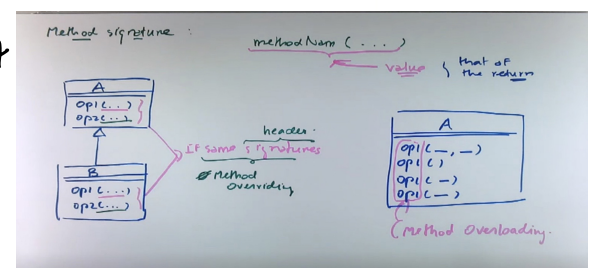 Method signature :
methodNam (...)
value } that of
the return
A
op1(...)
op2(...)
B
op1(...)
op2(...)
header.
If same signatures
Method
Overriding
A
op1(_,_)
op1()
op1(_)
op1(_)
Method Overloading.